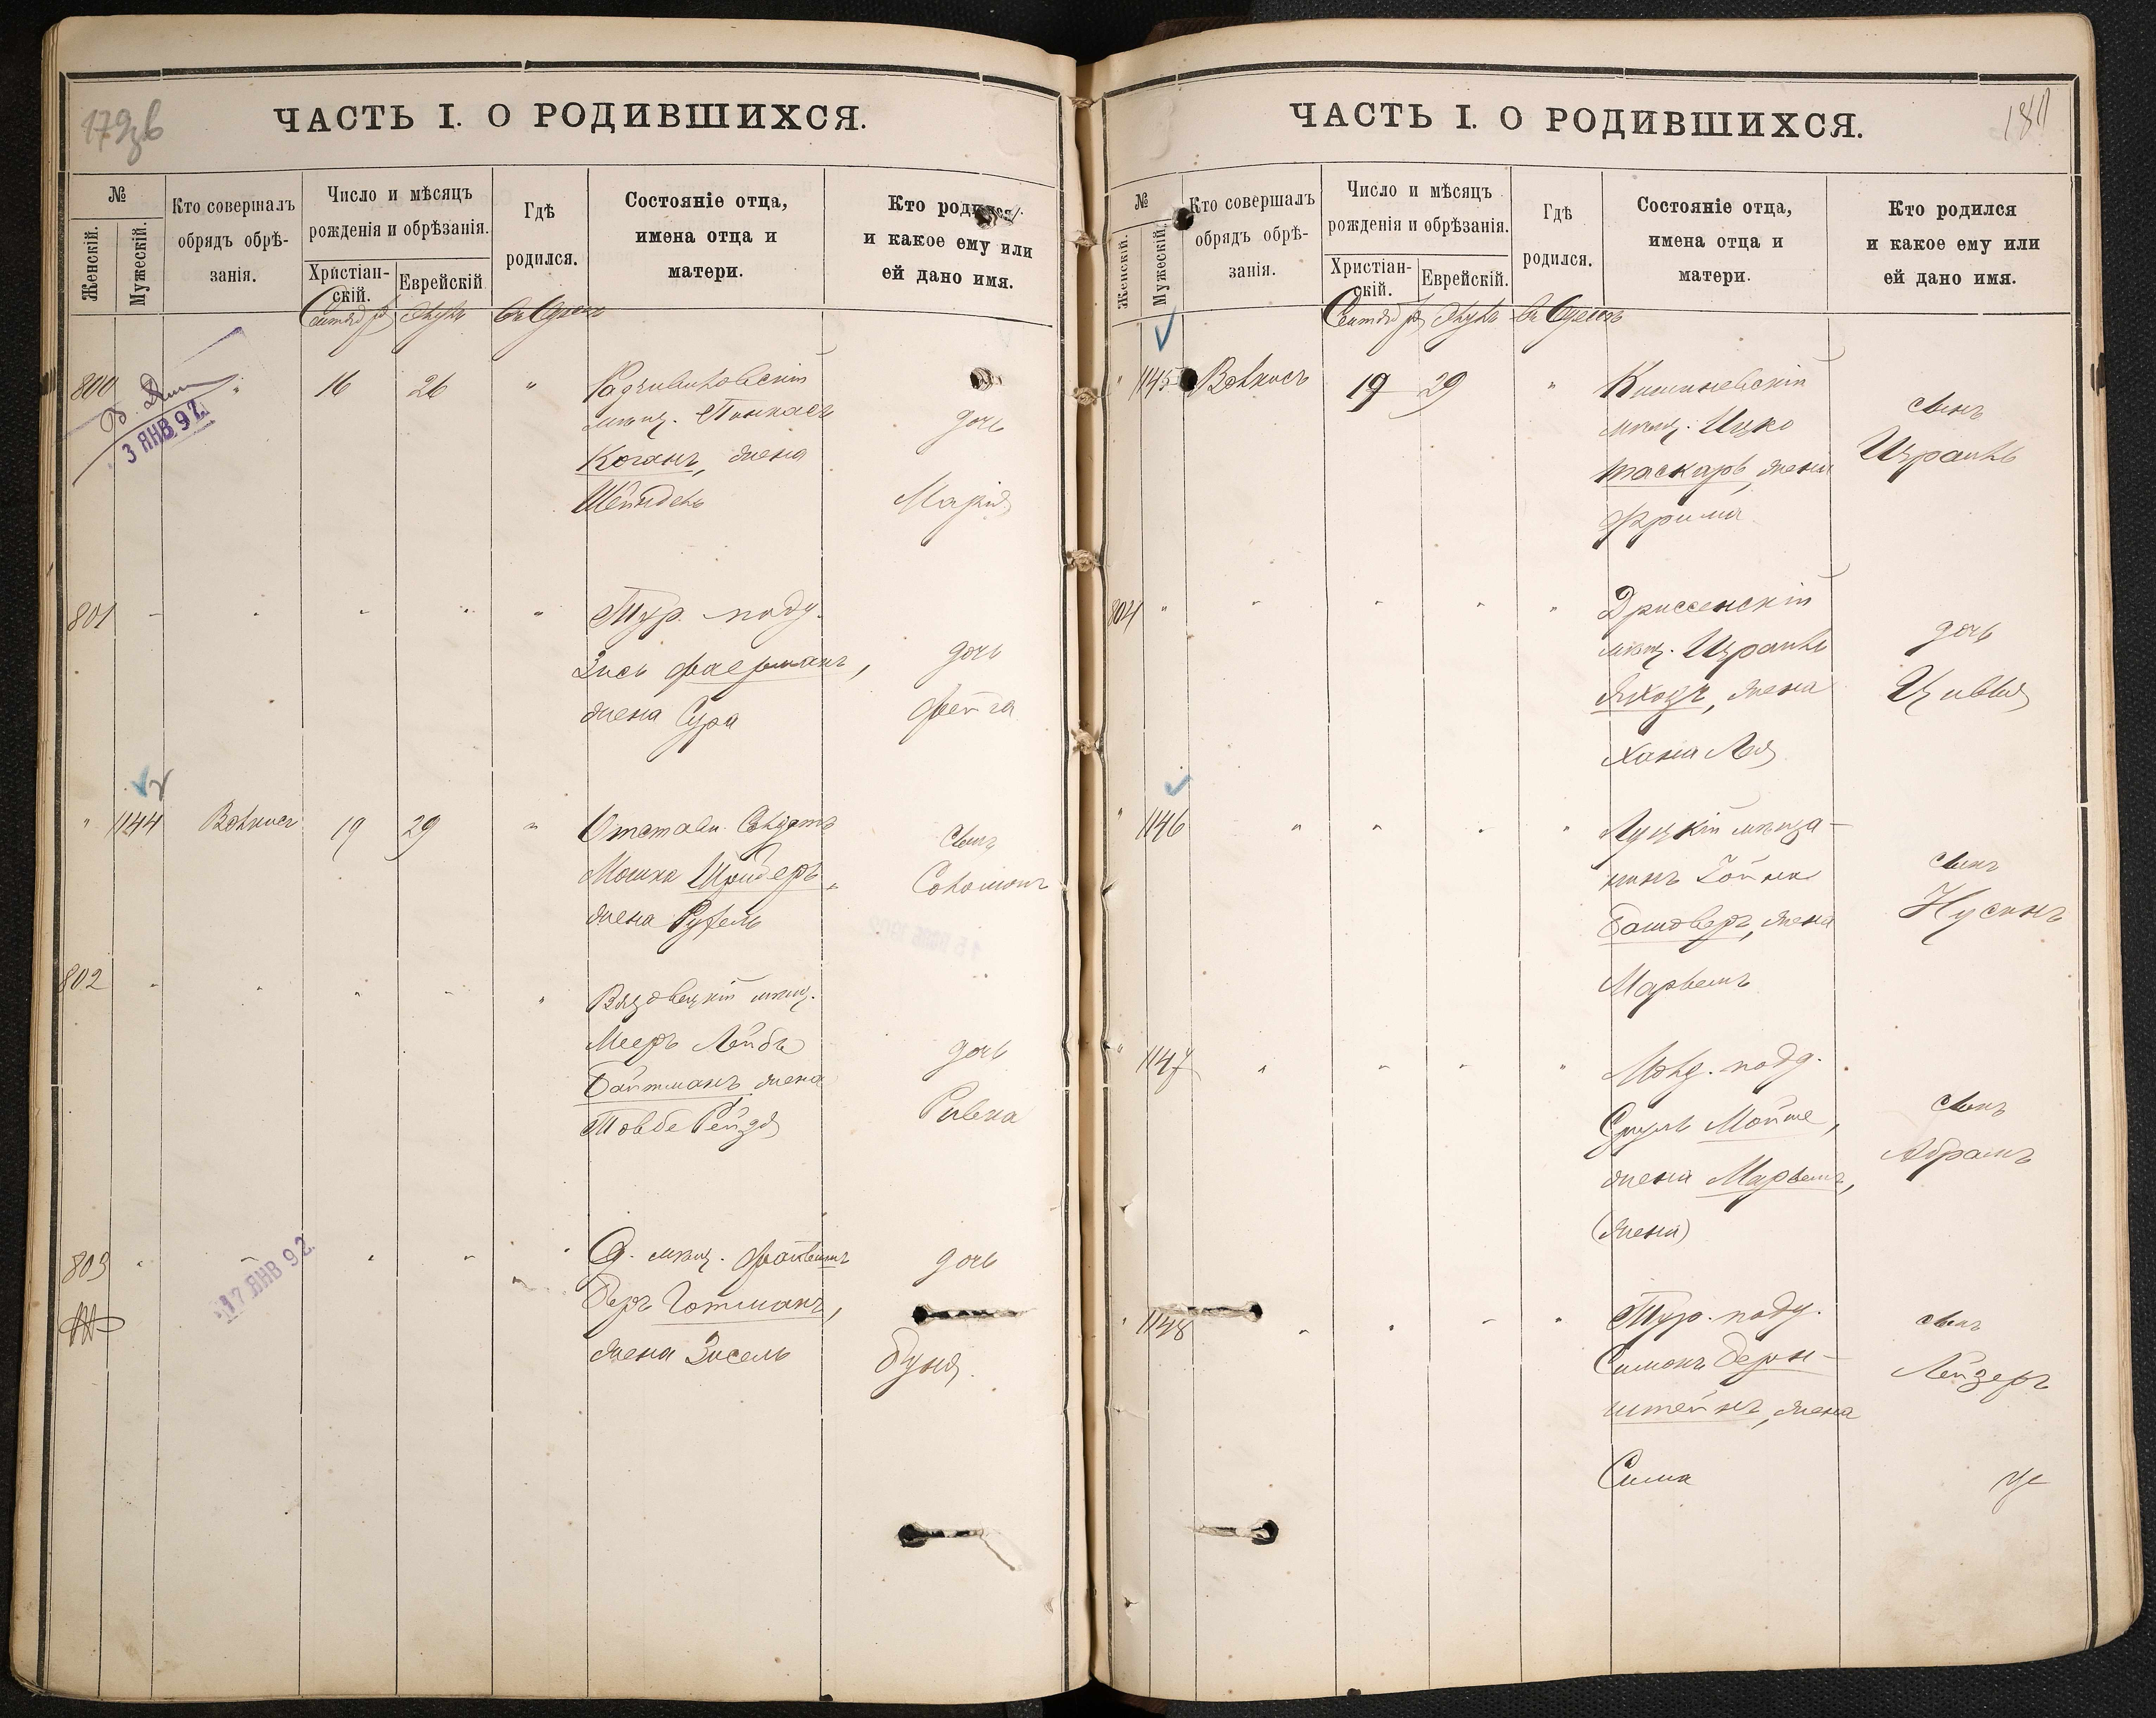 179об
ЧАСТЬ I. О РОДИВШИХСЯ.
№
Женскій.
Мужескій.
Кто совершалъ
обрядъ обрѣ-
занія.
Число и мѣсяцъ
рожденія и обрѣзанія.
Христіан-
скій.
Еврейскій
Гдѣ
родился.
Состояніе отца,
имена отца и
матери.
Кто родился
и какое ему или
ей дано имя.
Сентября Элулъ въ Одессѣ
800 " 16 26 " Радзивиловскій
мѣщ. Пинкасъ
Коганъ, жена
Шейндель
дочь
Марія
3 ЯНВ 92
801 - " " " " Тур. подд.
Зись Фаерманъ,
жена Сура
дочь
Фейга
" 1144 Вольисъ 19 29 " Отставн. Солдатъ
Мошка Шнидеръ,
жена Рухель
сынъ
Соломонъ
802 " " " " " мѣщ.
Мееръ Лейбъ
Байтманъ жена
Товбе Рейзя
дочь
Ривка
803 " " " " " О. мѣщ. Файвишъ
Беръ Готманъ,
жена Зисель
дочь
Буня.
17 ЯНВ 92.
180
ЧАСТЬ I. О РОДИВШИХСЯ.
№
Женскій.
Мужескій.
Кто совершалъ
обрядъ обрѣ-
занія.
Число и мѣсяцъ
рожденія и обрѣзанія.
Христіан-
скій.
Еврейскій.
Гдѣ
родился.
Состояніе отца,
имена отца и
матери.
Кто родился
и какое ему или
ей дано имя.
Сентября Элулъ въ Одессѣ
" 1145 Вольисъ 19 29 " Кишиневскій
мѣщ. Ицко
Таскаръ, жена
Фрима
сынъ
Израиль
804 " " " " " Дриссенскій
мѣщ. Израиль
жена
Хана Лея
дочь
Цивья
" 1146 " " " " Луцкій мѣща-
нинъ
жена
Марьемъ
сынъ
Нусинъ
" 1147 " " " " Молд. подд.
Сруль Мойше,
жена Марьемъ,
(жена)
сынъ
Абрамъ
" 1148 " " " " Тур. подд.
Симонъ Берн-
штейнъ, жена
Сима
сынъ
Лейзеръ